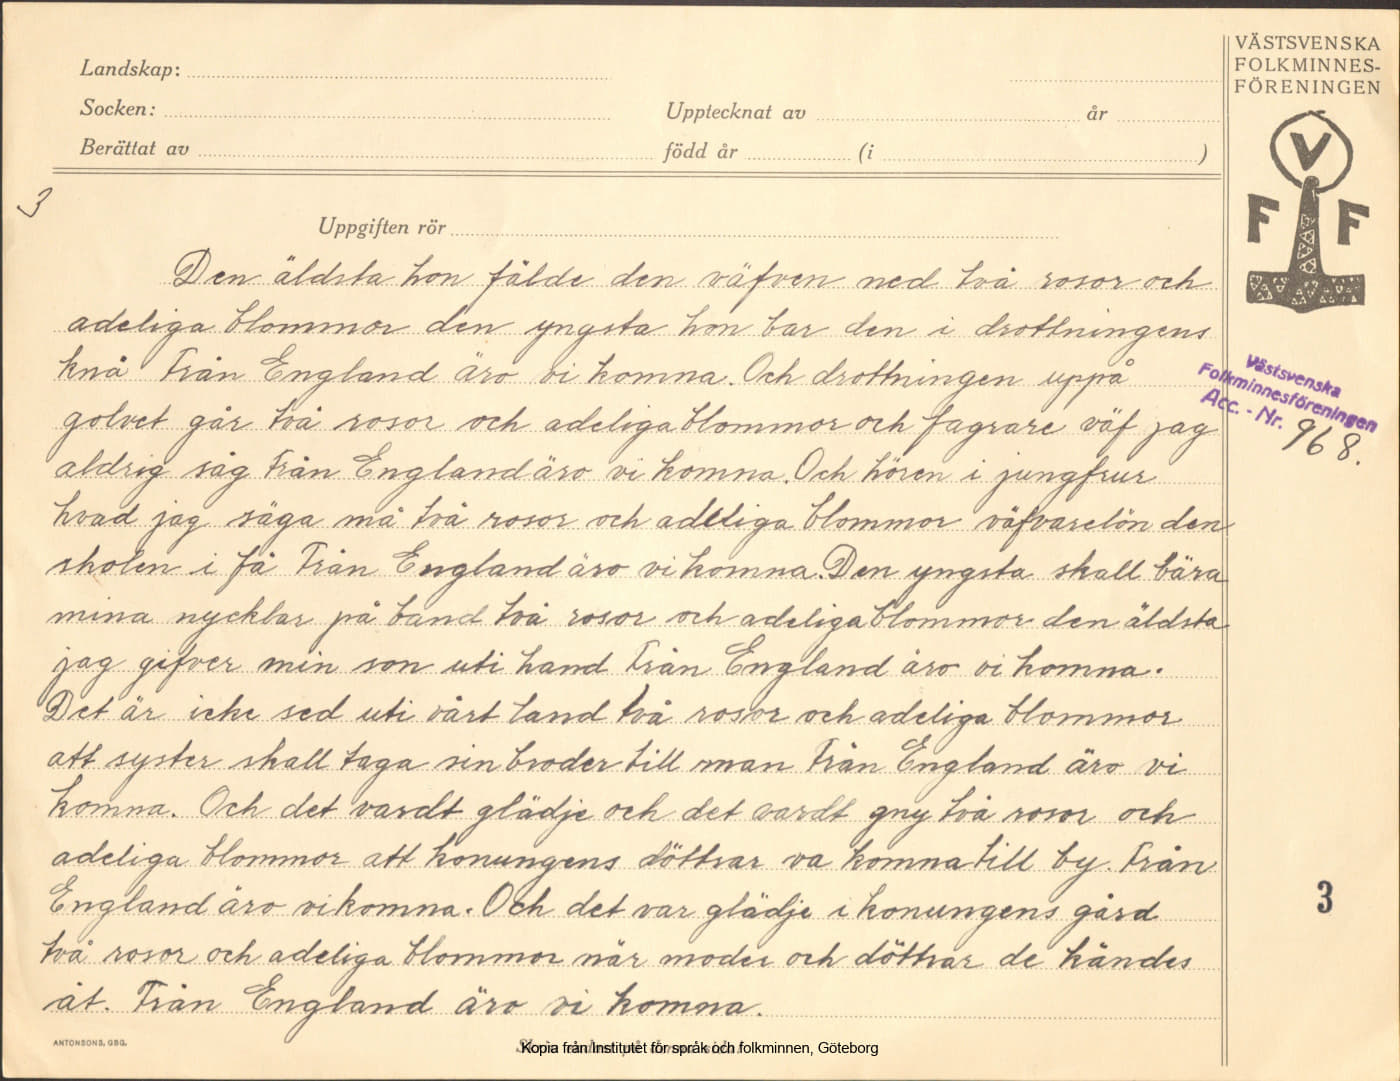 Landskap:
Socken:
Upptecknat av
år
Berättat av
född år
(i
)
VÄSTSVENSKA
FOLKMINNES-
FÖRENINGEN
V
F F
3
Uppgiften rör
Den äldsta hon fälde den väfven ned två rosor och
adeliga blommor den yngsta hon bar den i drottningens
knä Från England äro vi komna. Och drottningen uppå
golvet går två rosor och adeliga blommor och fagrare väf jag
aldrig såg Från England äro vi komna. Och hören i jungfrur
hvad jag säga må två rosor och adeliga blommor väfvarelön den
skolen i få Från England äro vi komna. Den yngsta skall bära
mina nycklar på band två rosor och adeliga blommor den äldsta
jag gifver min son uti hand Från England äro vi komna.
Det är icke sed uti vårt land två rosor och adeliga blommor
att syster skall taga sin broder till man Från England äro vi
komna. Och det vardt glädje och det vardt gny två rosor och
adeliga blommor att konungens döttrar va komna till by. Från
England äro vi komna. Och det var glädje i konungens gård
två rosor och adeliga blommor når moder och döttrar de kändes
åt. Från England äro vi komna.
Västsvenska
Folkminnesföreningen
Acc. - Nr. 968.
3
ANTONSONS, GBG.
Kopia från Institutet för språk och folkminnen, Göteborg